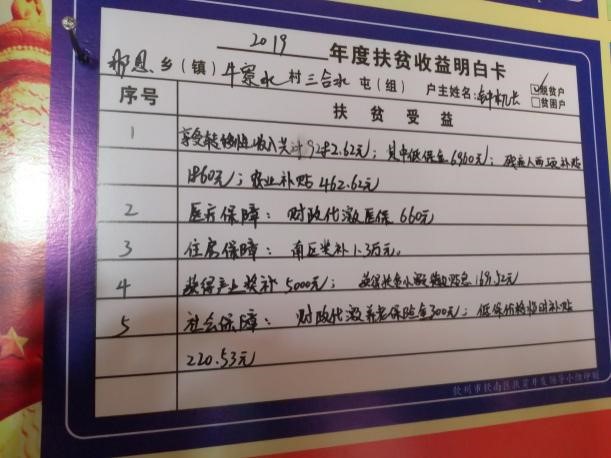 2019 年度扶贫收益明白卡
那思乡(镇)牛寮水村三合水屯(组) 户主姓名:钟机长 ☑脱贫户
□贫困户
序号 扶贫受益
1 享受转移性收入共计9282.62元;其中低保金6960元;残疾人两项补贴
1860元;农业补贴462.62元
2 医疗保障:财政代缴医保660元
3 住房保障:南区奖补1.3万元。
4 获得产业奖补5000元; 获得扶贫小额 贴息169.52元
5 社会保障: 财政代缴养老保险金300元;低保价格临时补贴
220.53元
钦州市钦南区扶贫开发领导小组印制